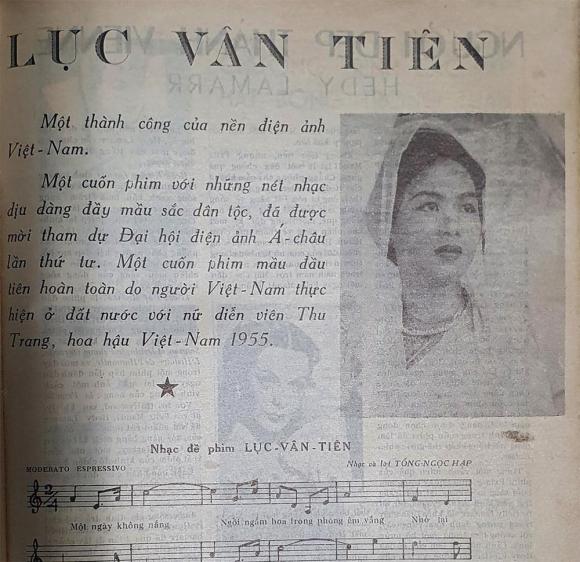 LỤC VÂN TIÊN
Một thành công của nền điện ảnh
Việt-Nam.
Một cuốn phim với những nét nhạc
dịu dàng đầy mầu sắc dân tộc, đã được
mời tham dự Đại hội điện ảnh Á-châu
lần thứ tư. Một cuốn phim mầu đầu
tiên hoàn toàn do người Việt-Nam thực
hiện ở đất nước với nữ diễn viên Thu
Trang, hoa hậu Việt-Nam 1955.
Nhạc đề phim LỤC-VÂN-TIÊN
MODERATO ESPRESSIVO
Nhạc và lời TỐNG-NGỌC HẠP
2/4
Một ngày không nắng Ngồi ngắm hoa trong phòng êm vắng Nhớ lại